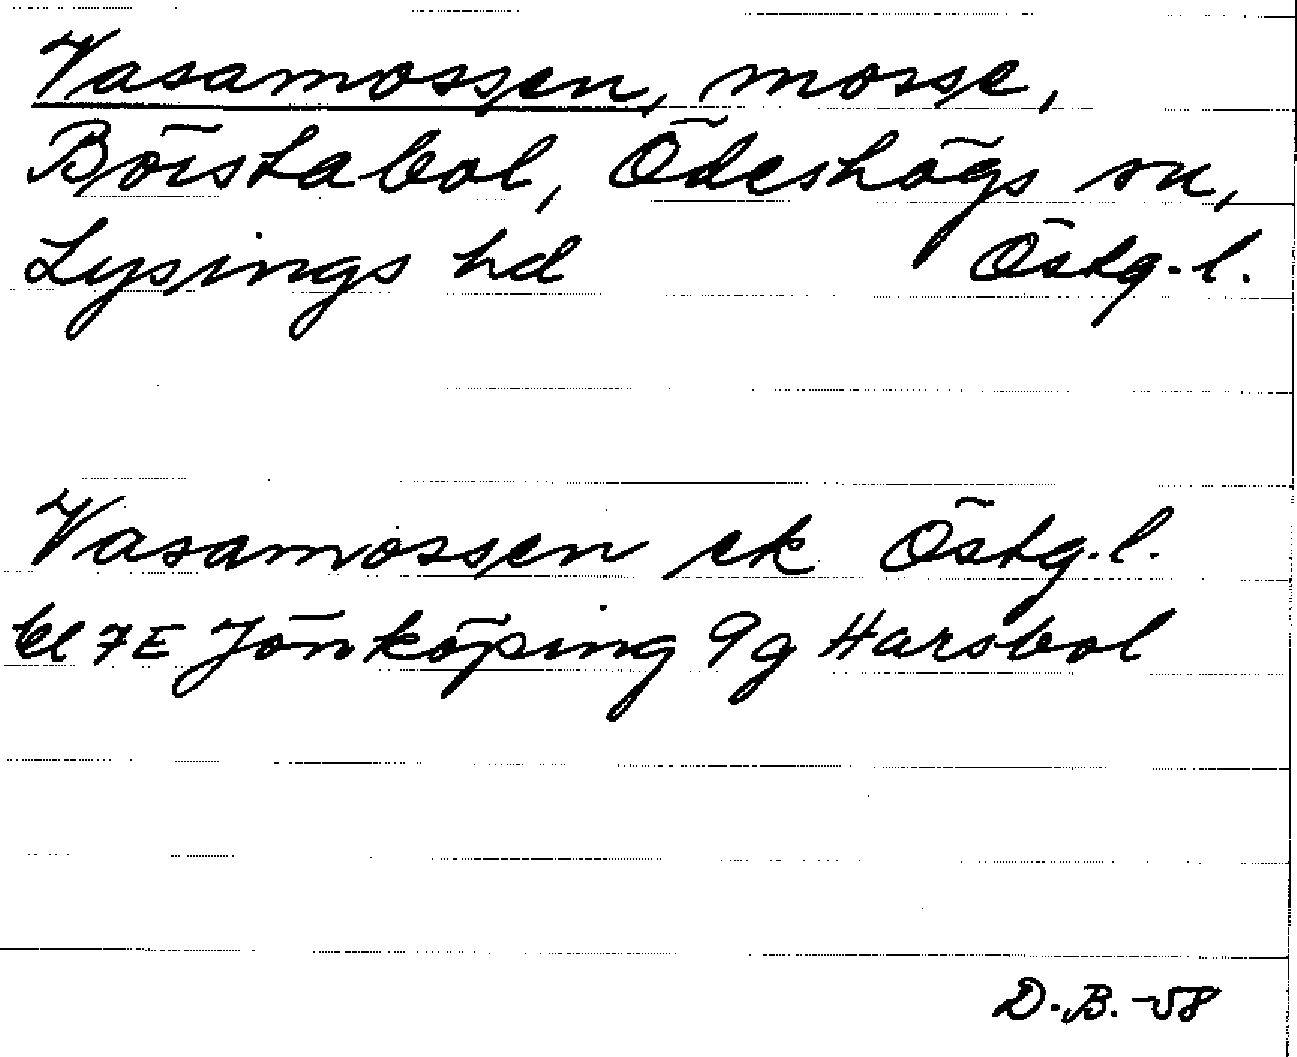 Vasamossen, mosse,
Börstabol, Ödeshögs sn,
Lysings hd Östg. l.
Vasamossen ek Östg. l.
bl 7E Jönköping 9g Harsbol
D.B. -58